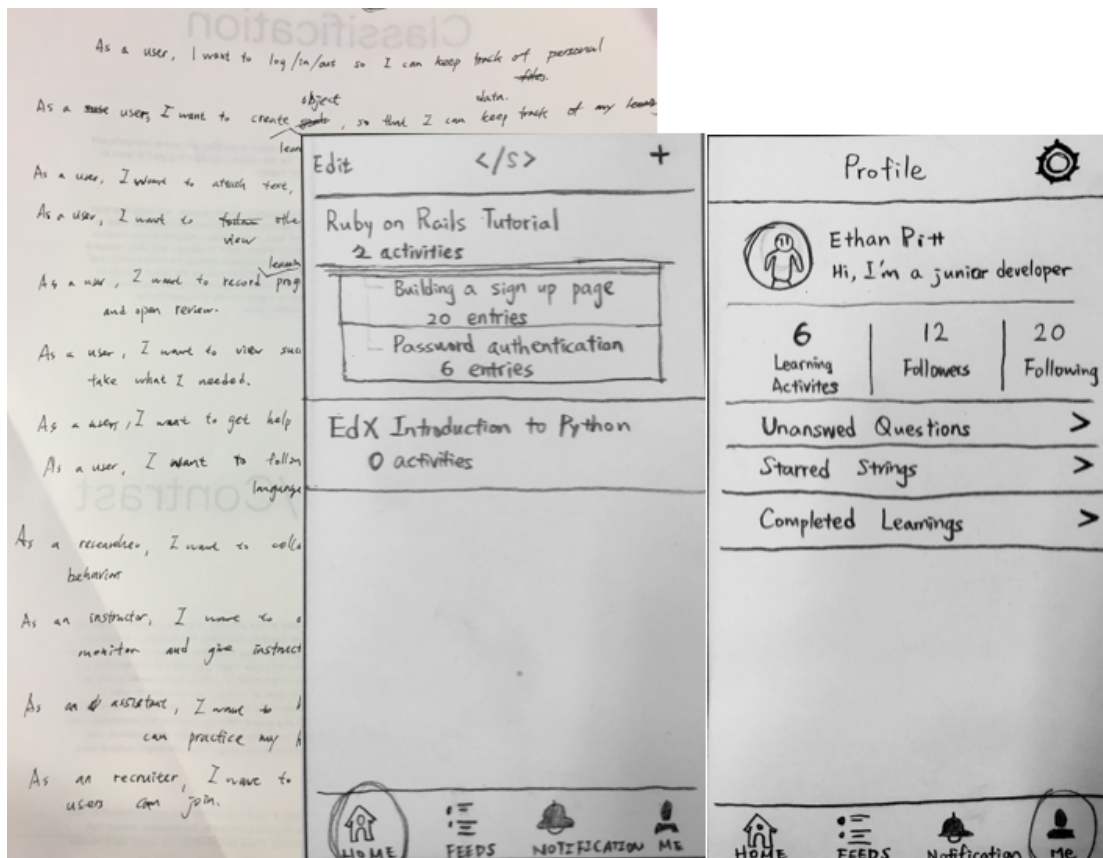 Classification
As a user, I want to log/in/out so I can keep track of personal
files.
object data.
As a user, I want to create goals, so that I can keep track of my
As a user, I want to attach text,
As a user, I want to follow
view
As a user, I want to record
and open review.
As a user, I want to view
take what I needed.
As a user, I want to get help
As a user, I want to follow
language
Contrast
As a researcher, I want to
behavior
As an instructor, I want to
monitor and give
As an assistant, I want to
can practice my
As an recruiter, I want to
users can join.
Edit </S> +
Ruby on Rails Tutorial
2 activities
Building a sign up page
20 entries
Password authentication
6 entries
EdX Introduction to Python
0 activities
HOME FEEDS NOTIFICATION ME
Profile
Ethan Pitt
Hi, I'm a junior developer
6 12 20
Learning Followers Following
Activites
Unanswed Questions >
Starred Strings >
Completed Learnings >
HOME FEEDS Notification Me